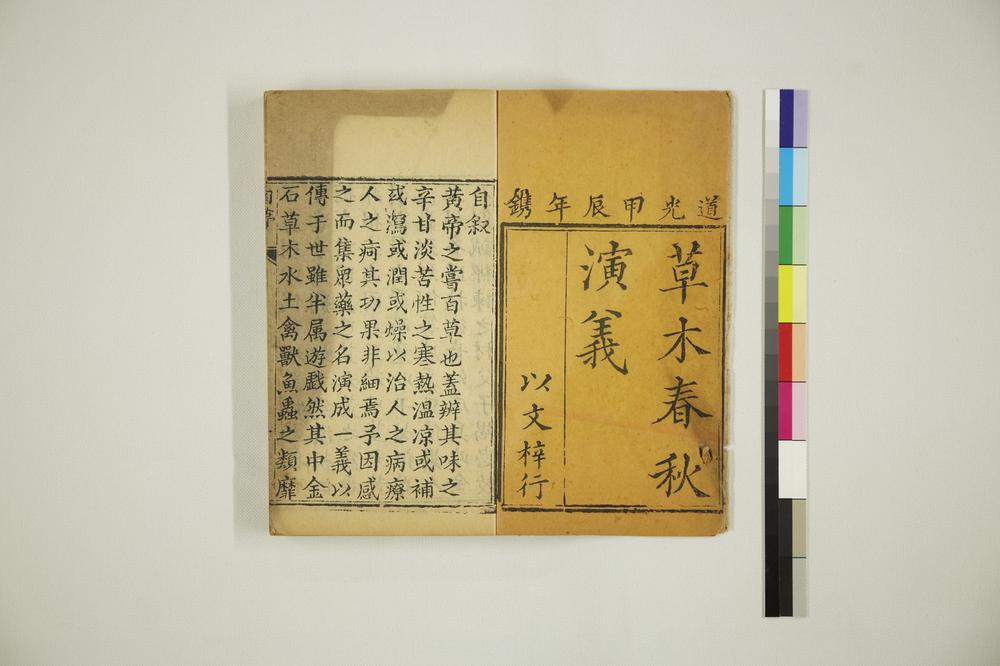 道光甲辰年鐫
草木春秋
演義
以文梓行
自叙
黄帝之嘗百草也蓋辨其味之
辛甘淡苦性之寒熱温凉或補
或瀉或潤或燥以治人之病療
人之疴其功果非細焉予因感
之而集衆藥之名演成一義以
傳于世雖半属遊戯然其中金
石草木水土禽獸魚蟲之類靡